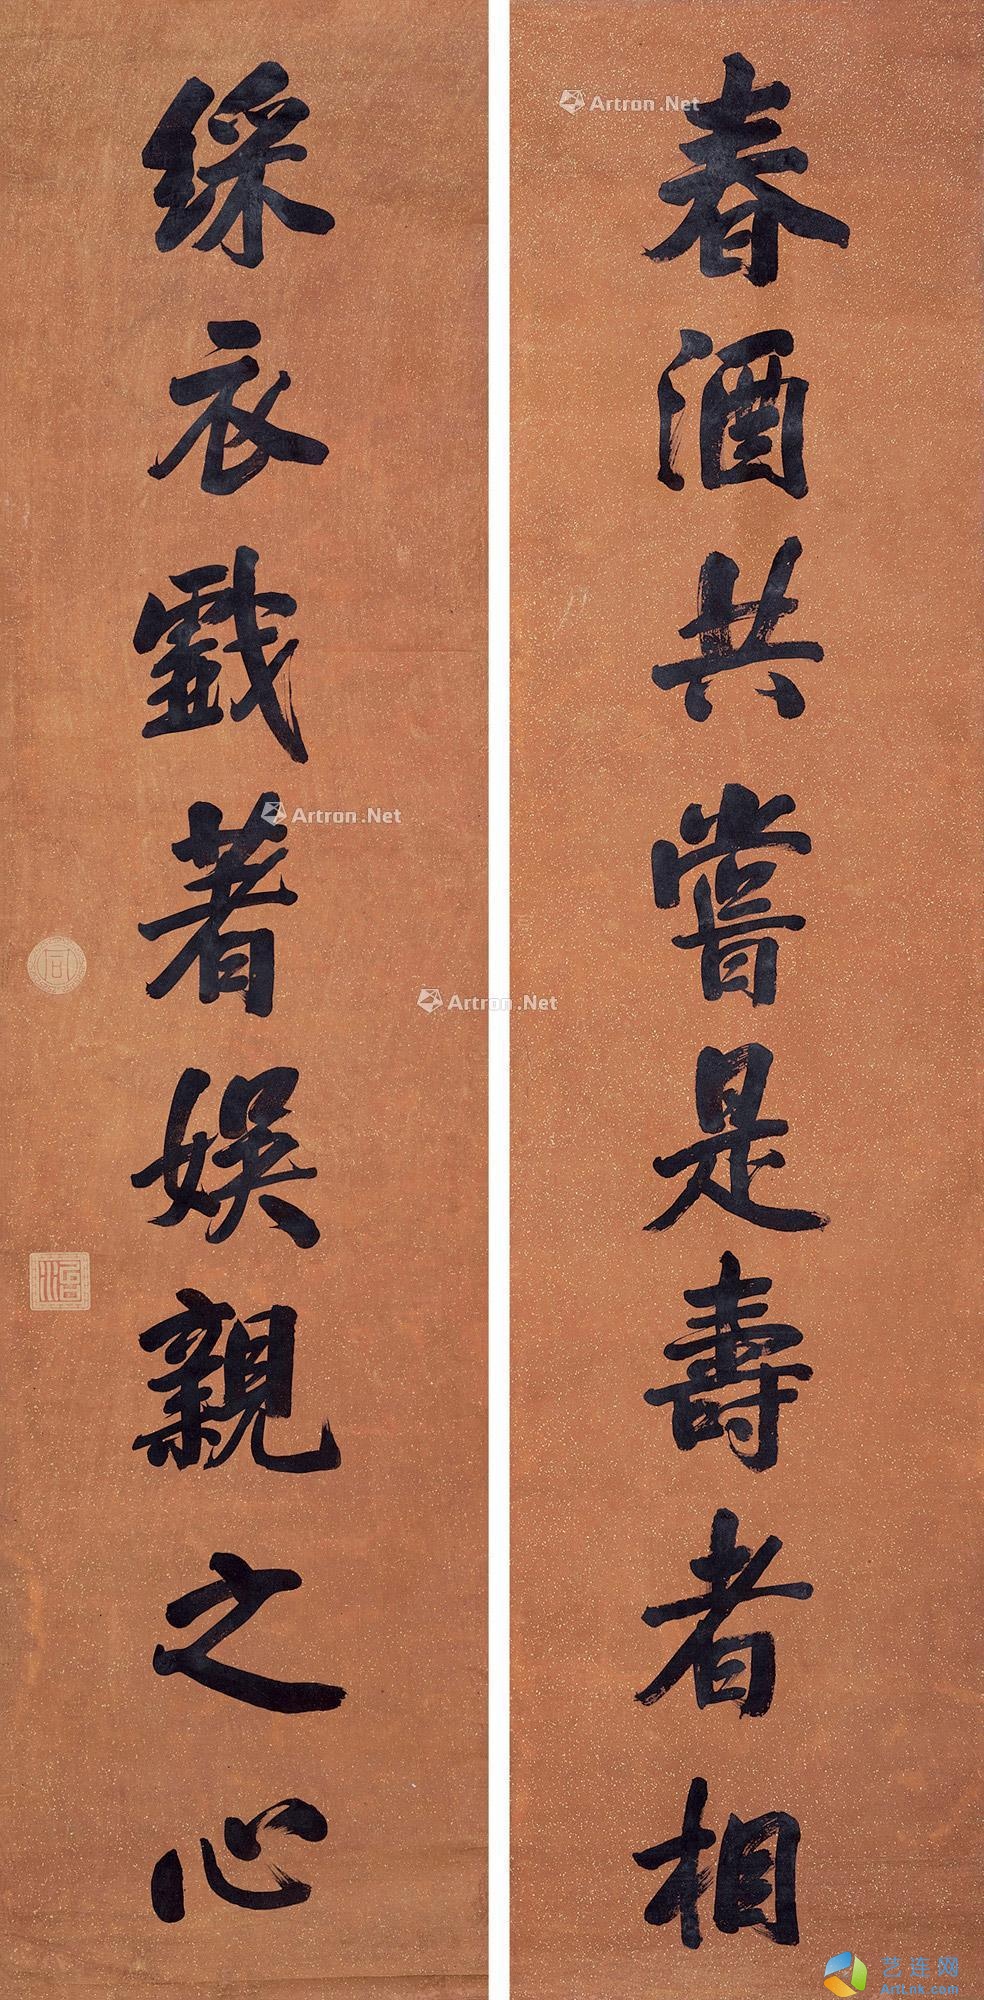 春酒共嘗是壽者相
綵衣戲著娛親之心
同
治
Artron.Net
Artron.Net
Artron.Net
艺连网
Artlink.com